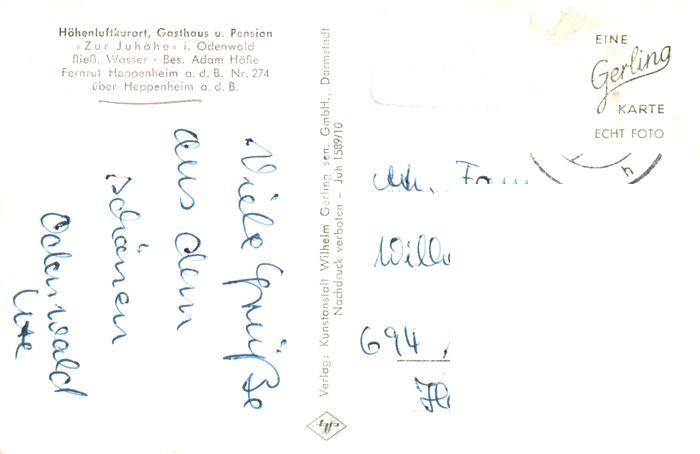 Höhenluftkurort, Gasthaus u. Pension
»Zur Juhöhe« i. Odenwald
fließ. Wasser · Bes. Adam Höfle
Fernruf Heppenheim a. d. B. Nr. 274
über Heppenheim a. d. B.
Viele Grüße
aus dem
schönen
Odenwald
Ute
Verlag: Kunstanstalt Wilhelm Gerling sen. GmbH., Darmstadt
Nachdruck verboten – Juh 1589/10
EINE
Gerling
KARTE
ECHT FOTO
An. Fam
694